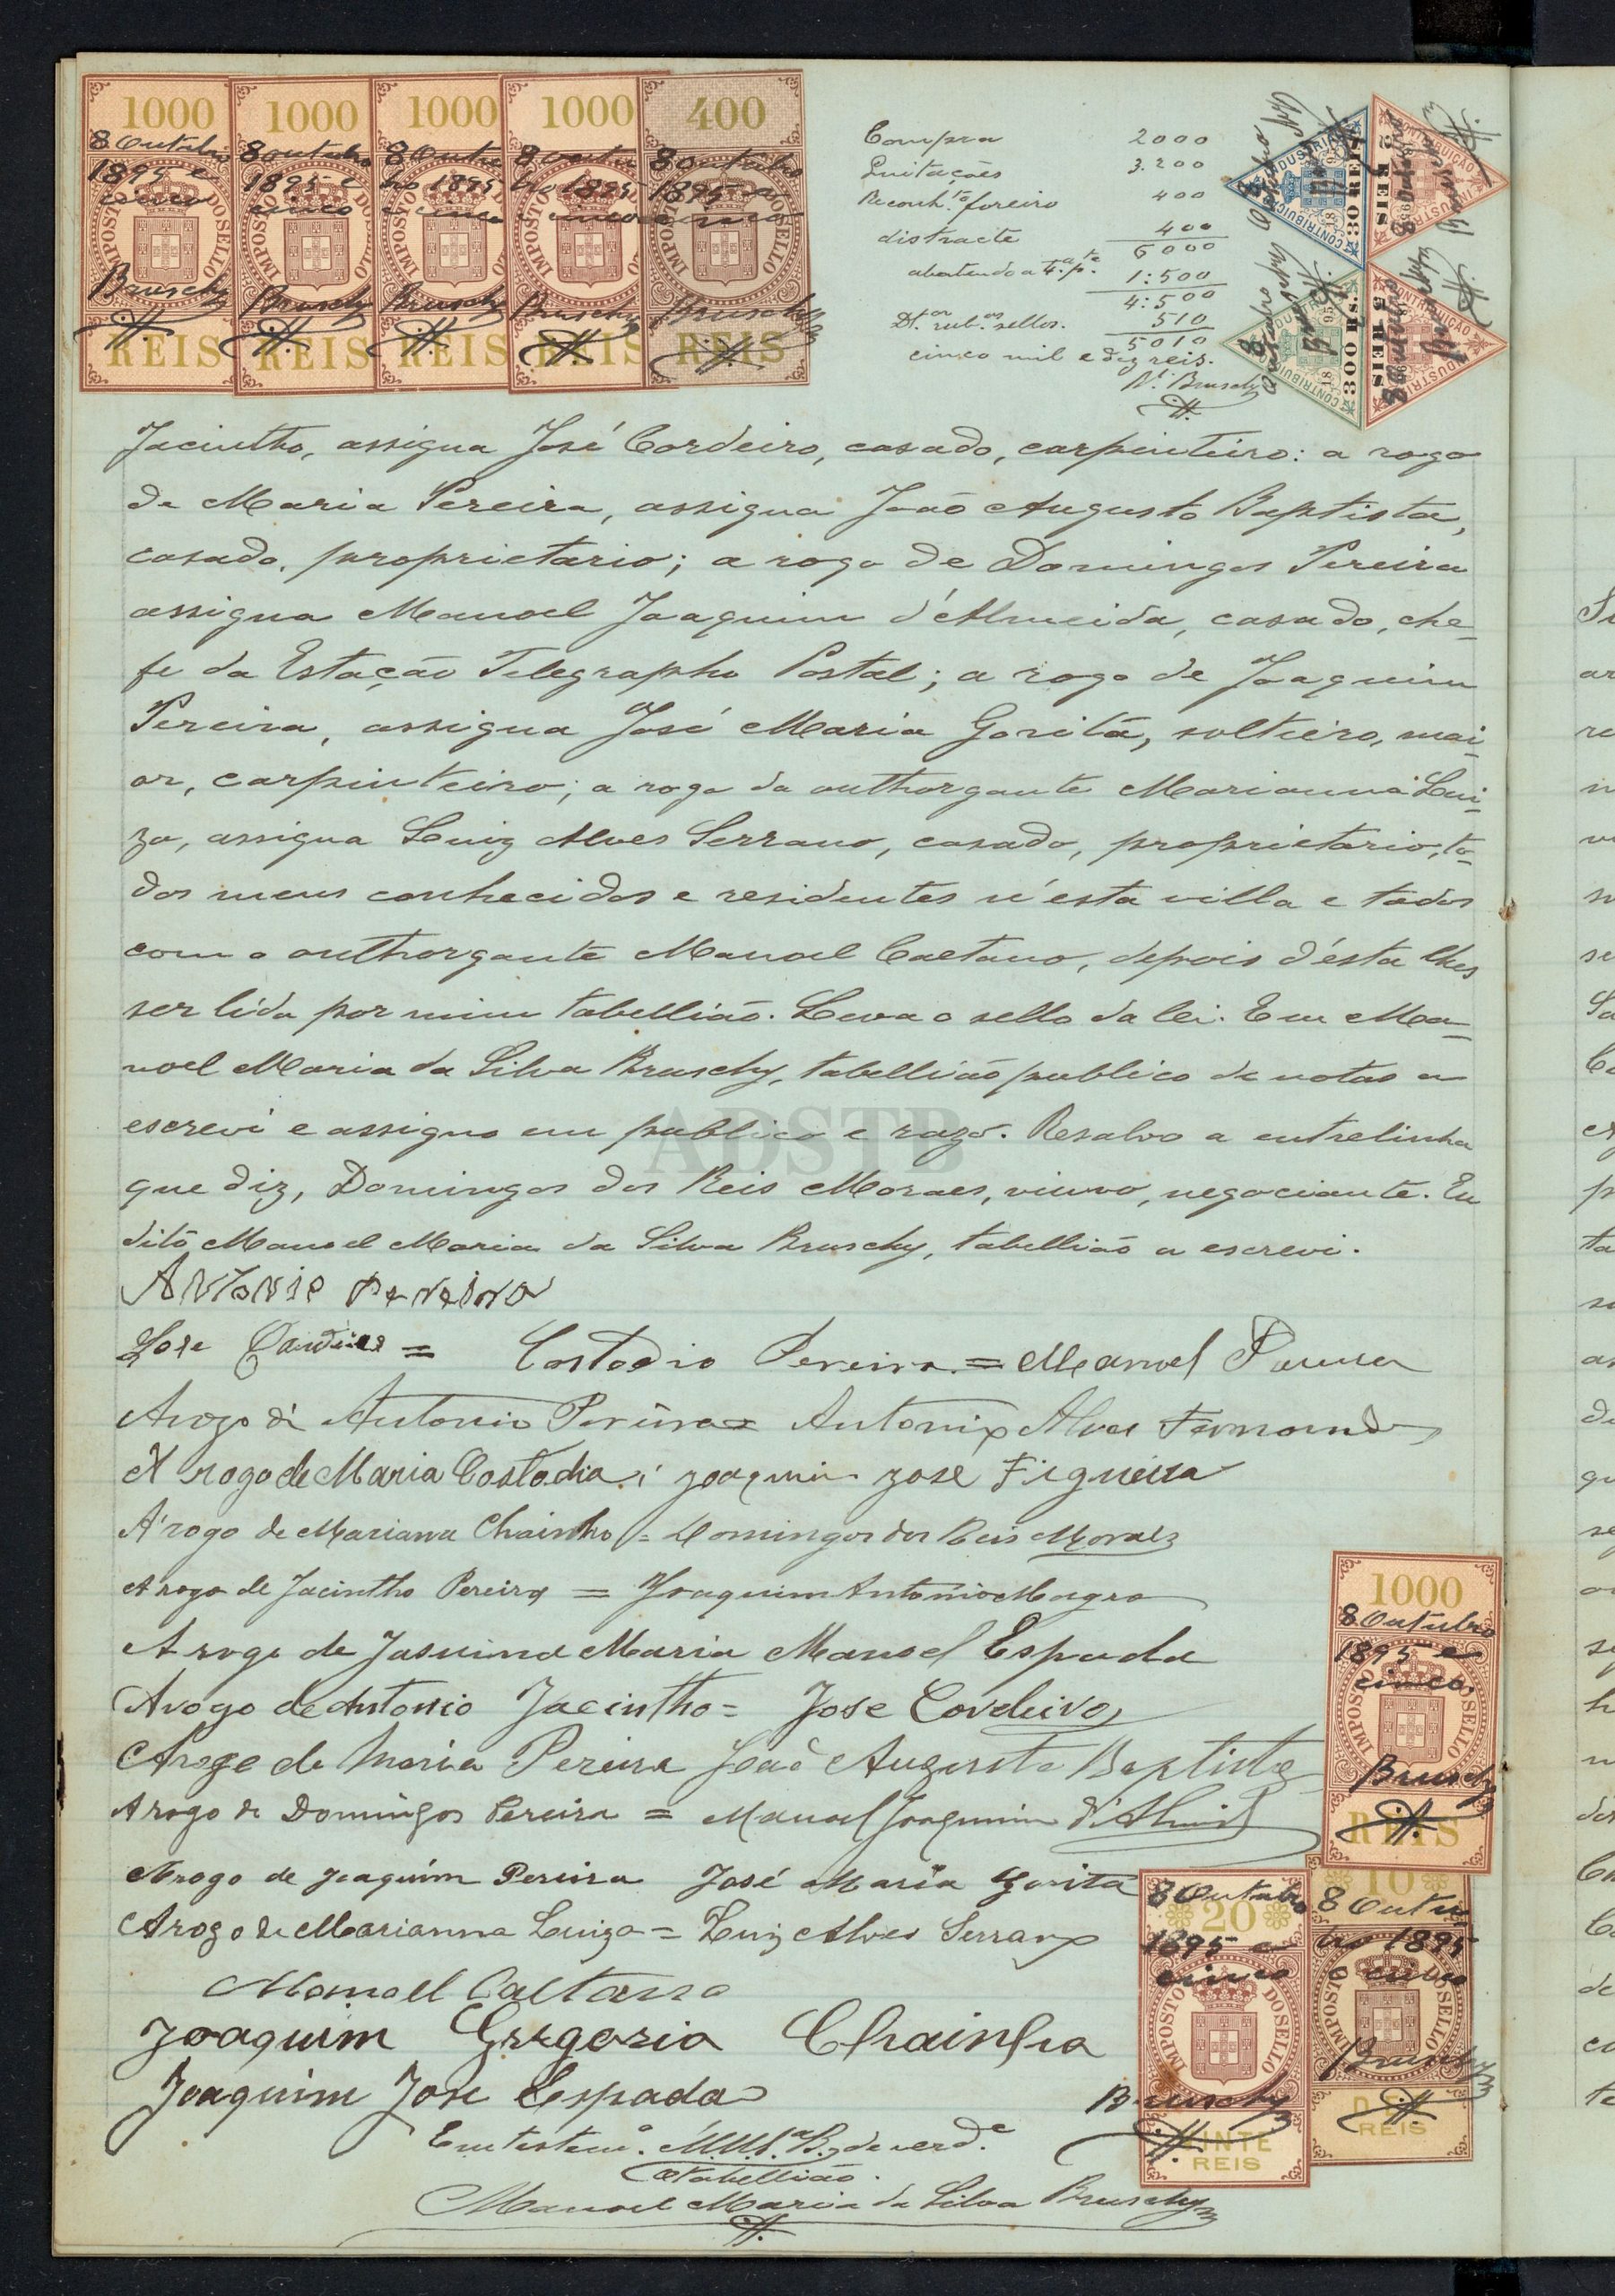 1000
8 Outubro
1895 e
cinco
IMPOSTO DO SELLO
Bruschy
REIS
1000
8 Outubro
1895 e
cinco
IMPOSTO DO
Bruschy
REIS
1000
8 Outu
bro 1895
e cinco
IMPOSTO DO
Bruschy
REIS
1000
8 Outu
bro 1895
e cinco
IMPOSTO DO
Bruschy
REIS
400
8 Outubro
1895 e
cinco
IMPOSTO DO SELLO
Bruschy
REIS
Compra 2000
Quitações 3.200
Reconh.to foreiro 400
distracte 400
6000
abatendo a 4.a p.te 1:500
4:500
rub.as sellos. 510
5010
cinco mil e dez reis.
Bruschy
CONTRIBUIÇÃO INDUSTRIAL
30 REIS
8 Outubro
Bruschy
CONTRIBUIÇÃO INDUSTRIAL
5 REIS
8 Outubro
Bruschy
CONTRIBUIÇÃO INDUSTRIAL
300 Rs.
8 Outubro
Bruschy
CONTRIBUIÇÃO INDUSTRIAL
5 REIS
8 Outubro
Bruschy
Jacintho, assigna José Cordeiro, casado, carpinteiro: a rogo
de Maria Pereira, assigna João Augusto Baptista,
casado, proprietario; a rogo de Domingos Pereira
assigna Manoel Joaquim d'Almeida, casado, che-
fe da Estação Telegrapho Postal; a rogo de Joaquim
Pereira, assigna José Maria Goritã, solteiro, mai-
or, carpinteiro; a rogo da outhorgante Marianna Lui-
za, assigna Luiz Alves Serrano, casado, proprietario, to-
dos meus conhecidos e residentes n'esta villa e todos
com o outhorgante Manoel Caetano, depois d'ésta lhes
ser lida por mim tabellião. Leva o sello da lei. Eu Ma-
noel Maria da Silva Bruschy, tabellião publico de notas a
escrevi e assigno em publico e razo. Resalvo a entrelinha
que diz, Domingos dos Reis Moraes, viuvo, negociante. Eu
dito Manoel Maria da Silva Bruschy, tabellião a escrevi.
ADSTB
Antonio Pereira
Jose = Costodio Pereira = Manoel
Arogo di Antonio Pereira = Antonio Alves Fernandes
A rogo de Maria Costodia: Joaquim Jose Figueira
A rogo de Mariana Chainho = Domingos dos Reis Moraes
A rogo de Jacintho Pereira = Joaquim Antonio Magro
A rogo de Jasuina Maria Manoel Espada
Arogo de Antonio Jacintho = Jose Cordeiro
Arogo de Maria Pereira João Augusto Baptista
A rogo de Domingos Pereira = Manoel Joaquim d'Almeida
Arogo de Joaquim Pereira José Maria Goritã
Arogo de Marianna Luiza = Luiz Alves Serrano
Manoel Caetano
Joaquim Gregorio Chainho
Joaquim Jose Espada
Em testem.o M.M.S.a B. de verd.e
O tabellião.
Manoel Maria da Silva Bruschy
1000
8 Outubro
1895 e
cinco
IMPOSTO DO SELLO
Bruschy
REIS
8 Outubro
20
1895 e
cinco
IMPOSTO DO SELLO
Bruschy
VINTE
REIS
10
8 Outu
bro 1895
e cinco
IMPOSTO DO SELLO
Bruschy
DEZ
REIS